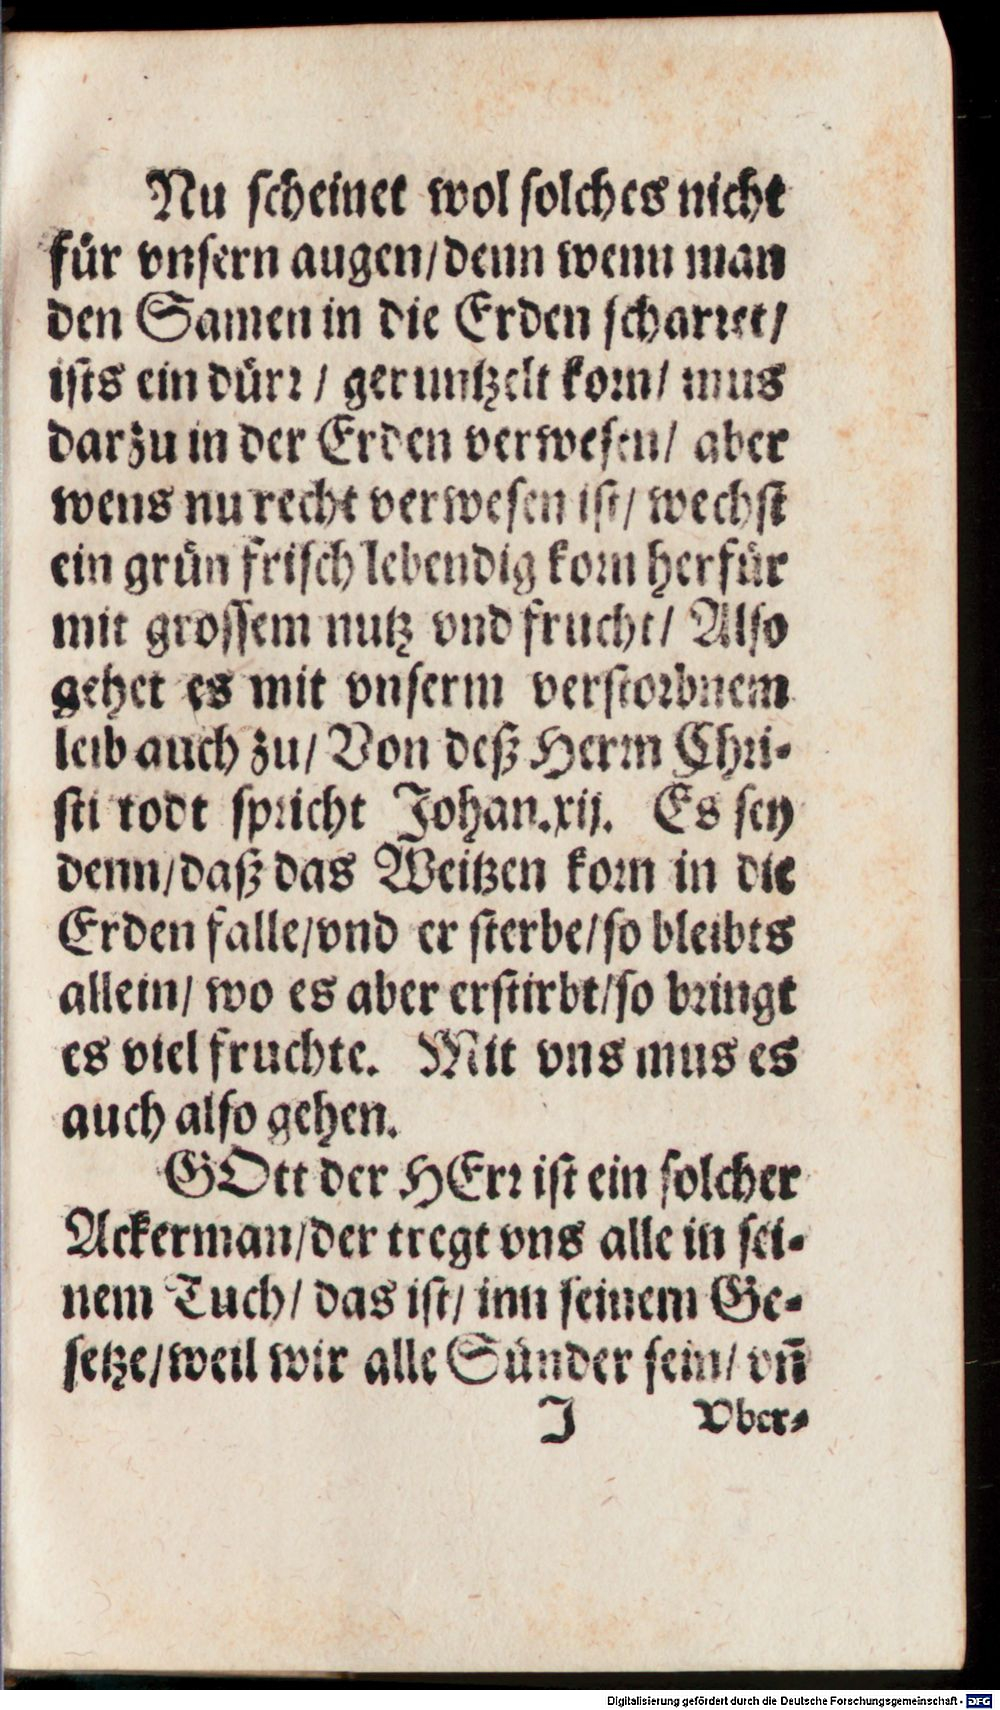 Nu scheinet wol solches nicht
für vnsern augen/denn wenn man
den Samen in die Erden scharret/
ists ein dürr / geruntzelt korn/ mus
darzu in der Erden verwesen/ aber
wens nu recht verwesen ist/ wechst
ein grün frisch lebendig korn herfür
mit grossem nutz vnd frucht/ Also
gehet es mit vnserm verstorbnem
leib auch zu/ Von deß Herrn Chri-
sti todt spricht Johan.xij. Es sey
denn/daß das Weitzen korn in die
Erden falle/vnd er sterbe/so bleibts
allein/ wo es aber erstirbt/so bringt
es viel fruchte. Mit vns mus es
auch also gehen.
GOtt der HErr ist ein solcher
Ackerman/der tregt vns alle in sei-
nem Tuch/ das ist/ inn seinem Ge-
setze/weil wir alle Sünder sein/ vn̄
J Vber-
Digitalisierung gefördert durch die Deutsche Forschungsgemeinschaft - DFG